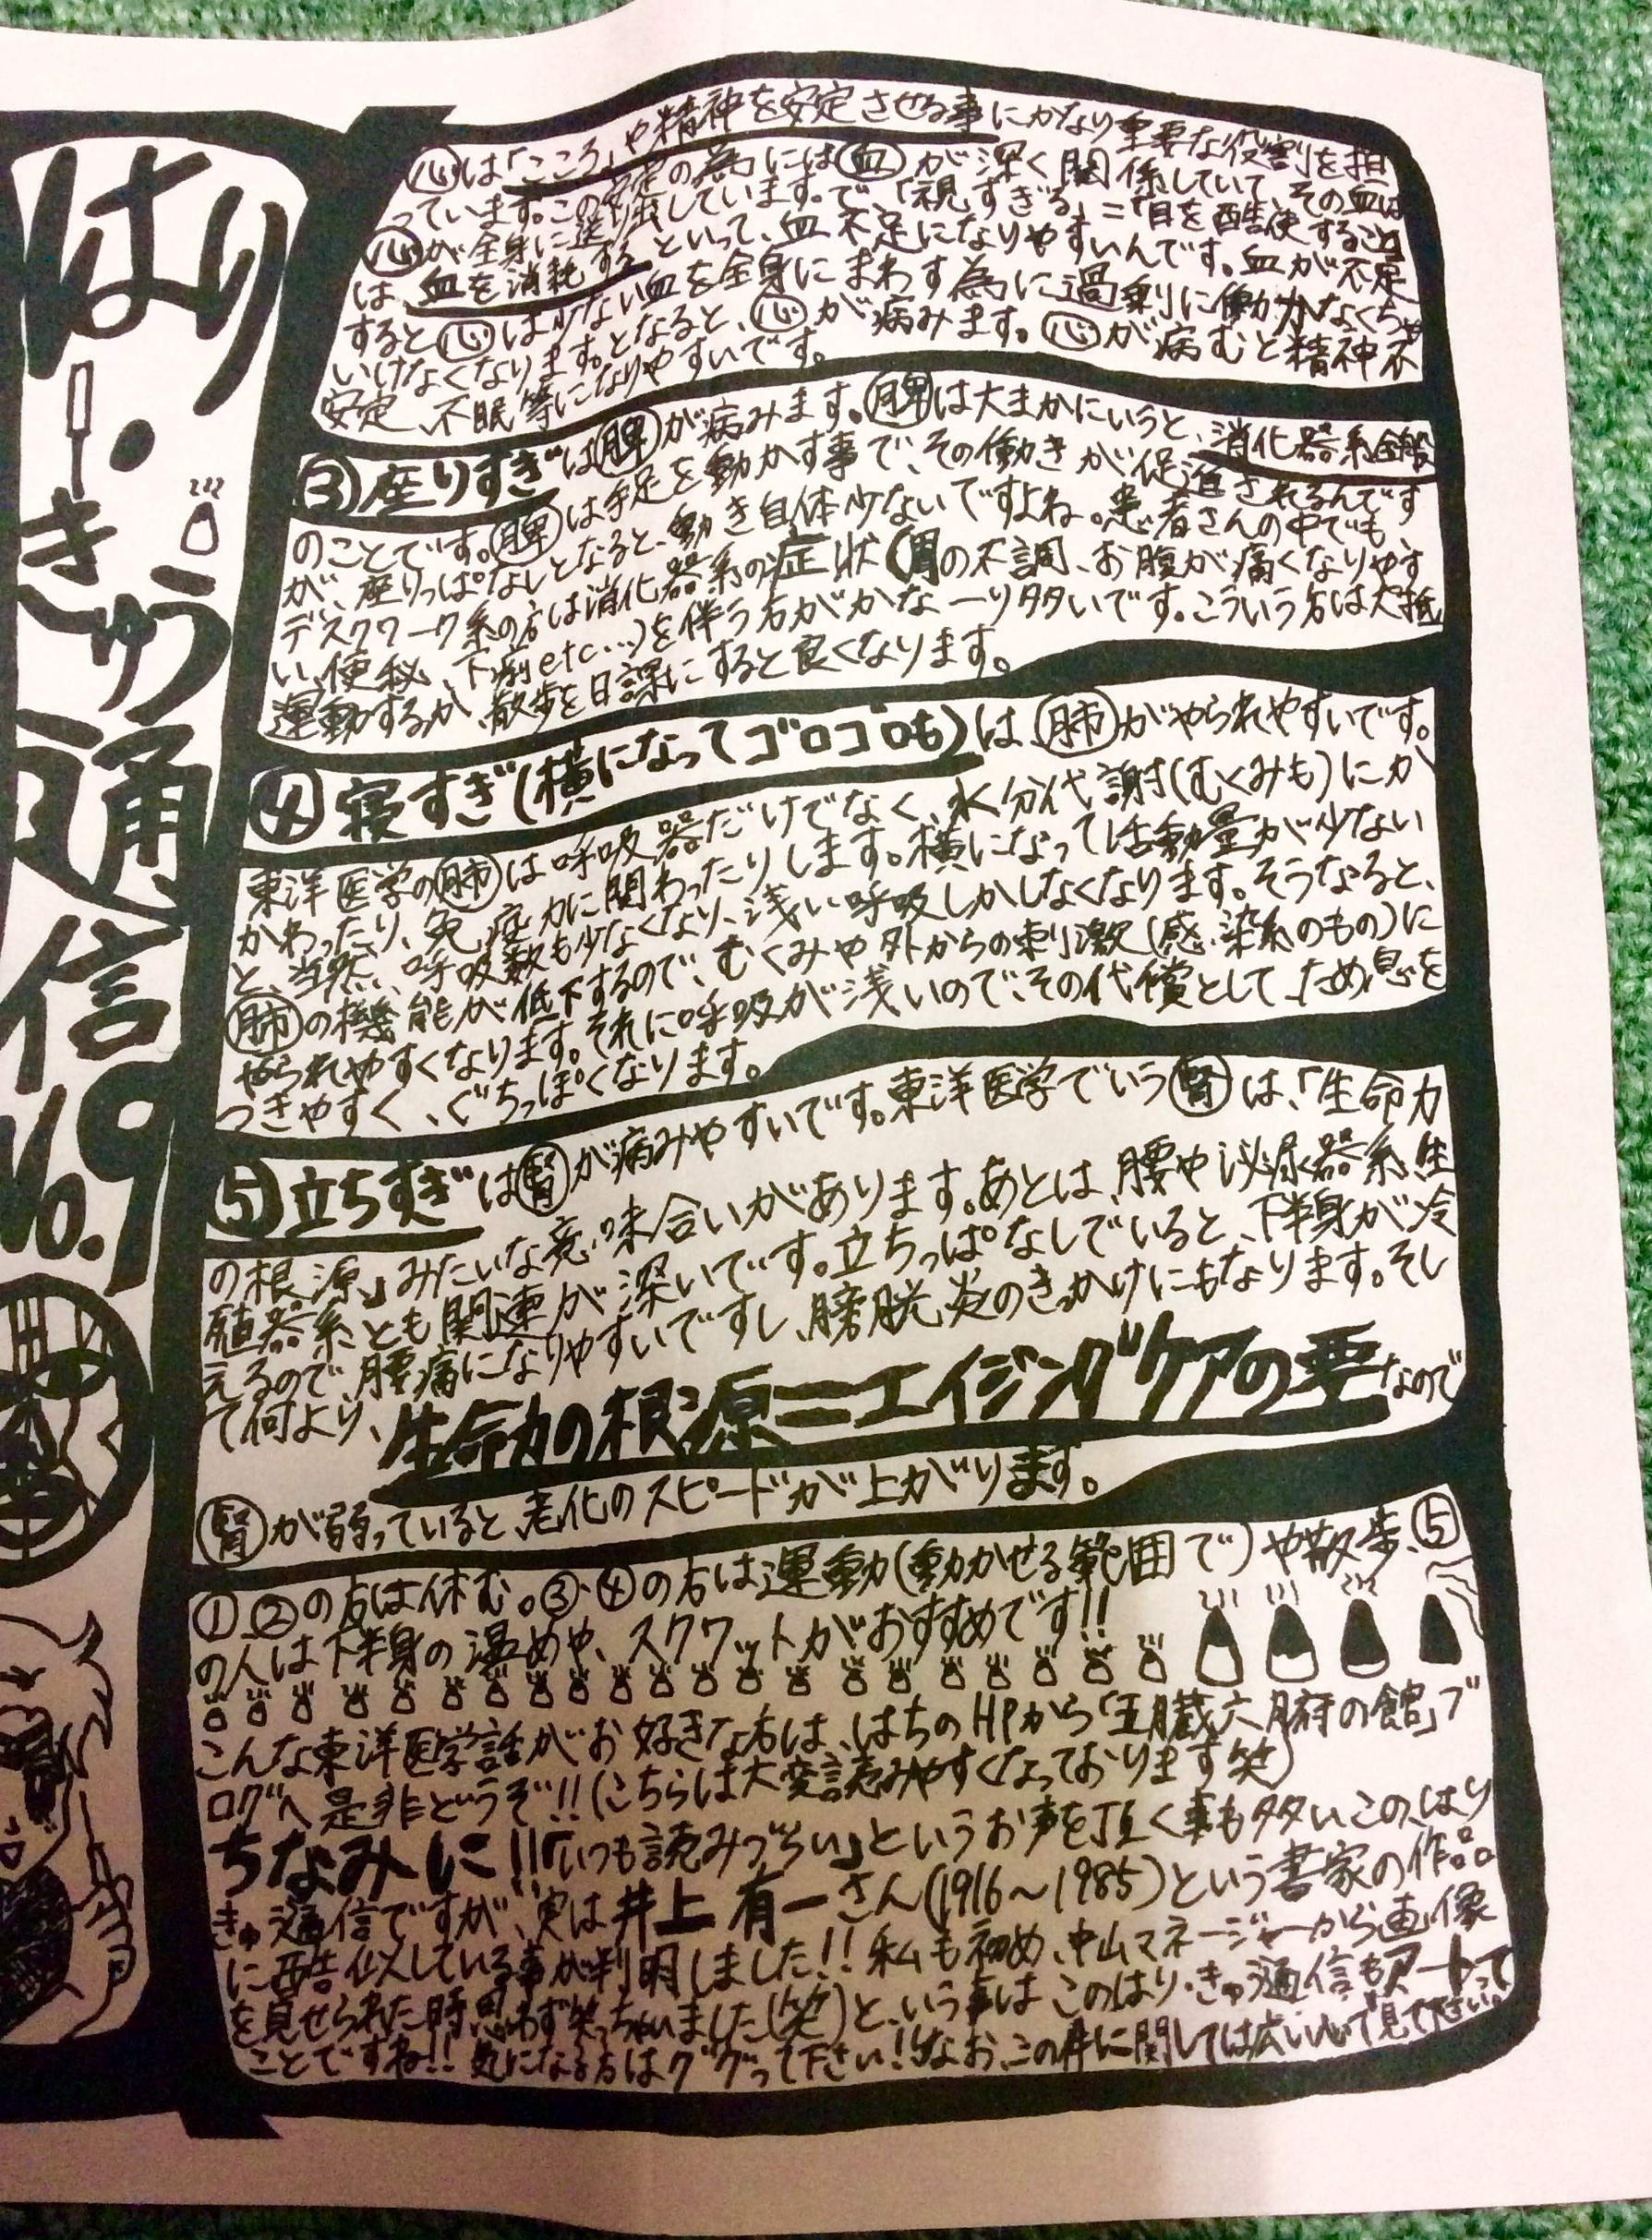 はり・きゅう通信No.9
心は「こころ」や精神を安定させる事にかなり重要な役割を担
っています。この安定の為には血が深く関係していて、その血は
心が全身に送り出しています。で、「視すぎる」=「目を酷使すること」
は、血を消耗するといって、血不足になりやすいんです。血が不足
すると心は少ない血を全身にまわす為に過剰に働かなくちゃ
いけなくなります。となると、心が病みます。心が病むと精神不
安定、不眠等になりやすいです。
③座りすぎは脾が病みます。脾は大まかにいうと、消化器系全般
のことです。脾は手足を動かす事で、その働きが促進されるんです
が、座りっぱなしとなると、動き自体少ないですよね。患者さんの中でも
デスクワーク系の方は消化器系の症状(胃の不調、お腹が痛くなりやす
い、便秘、下痢etc…)を伴う方がかな一り多いです。こういう方は大抵
運動するか、散歩を日課にすると良くなります。
④寝すぎ(横になってゴロゴロも)は、肺がやられやすいです。
東洋医学の肺は呼吸器だけでなく、水分代謝(むくみも)にか
かわったり、免疫力に関わったりします。横になって活動量が少ない
と、当然、呼吸数も少なくなり、浅い呼吸しかしなくなります。そうなると、
肺の機能が低下するので、むくみや外からの刺激(感染系のもの)に
やられやすくなります。それに呼吸が浅いので、その代償として、ため息を
つきやすく、ぐちっぽくなります。
⑤立ちすぎは腎が病みやすいです。東洋医学でいう腎は、「生命力
の根源」みたいな意味合いがあります。あとは、腰や泌尿器系、生
殖器系とも関連が深いです。立ちっぱなしでいると、下半身が冷
えるので、腰痛になりやすいですし、膀胱炎のきっかけにもなります。そし
て何より、生命力の根源=エイジングケアの要なので
腎が弱っていると、老化のスピードが上がります。
①、②の方は休む。③・④の方は運動(動かせる範囲で)や散歩、⑤
の人は下半身の温めや、スクワットがおすすめです!!
こんな東洋医学話がお好きな方は、はちのHPから「五臓六腑の館」ブ
ログへ是非どうぞ!!(こちらは大変読みやすくなっております笑)
ちなみに!!「いつも読みづらい」というお声を頂く事も多いこの、はり
きゅう通信ですが、実は井上有一さん(1916~1985)という書家の作品
に酷似している事が判明しました!!私も初め、中山マネージャーから画像
を見せられた時思わず笑っちゃいました(笑)と、いう事はこのはり・きゅう通信もアートって
ことですね!!気になる方はググって下さい!!なお、この件に関しては広い心で見て下さい。